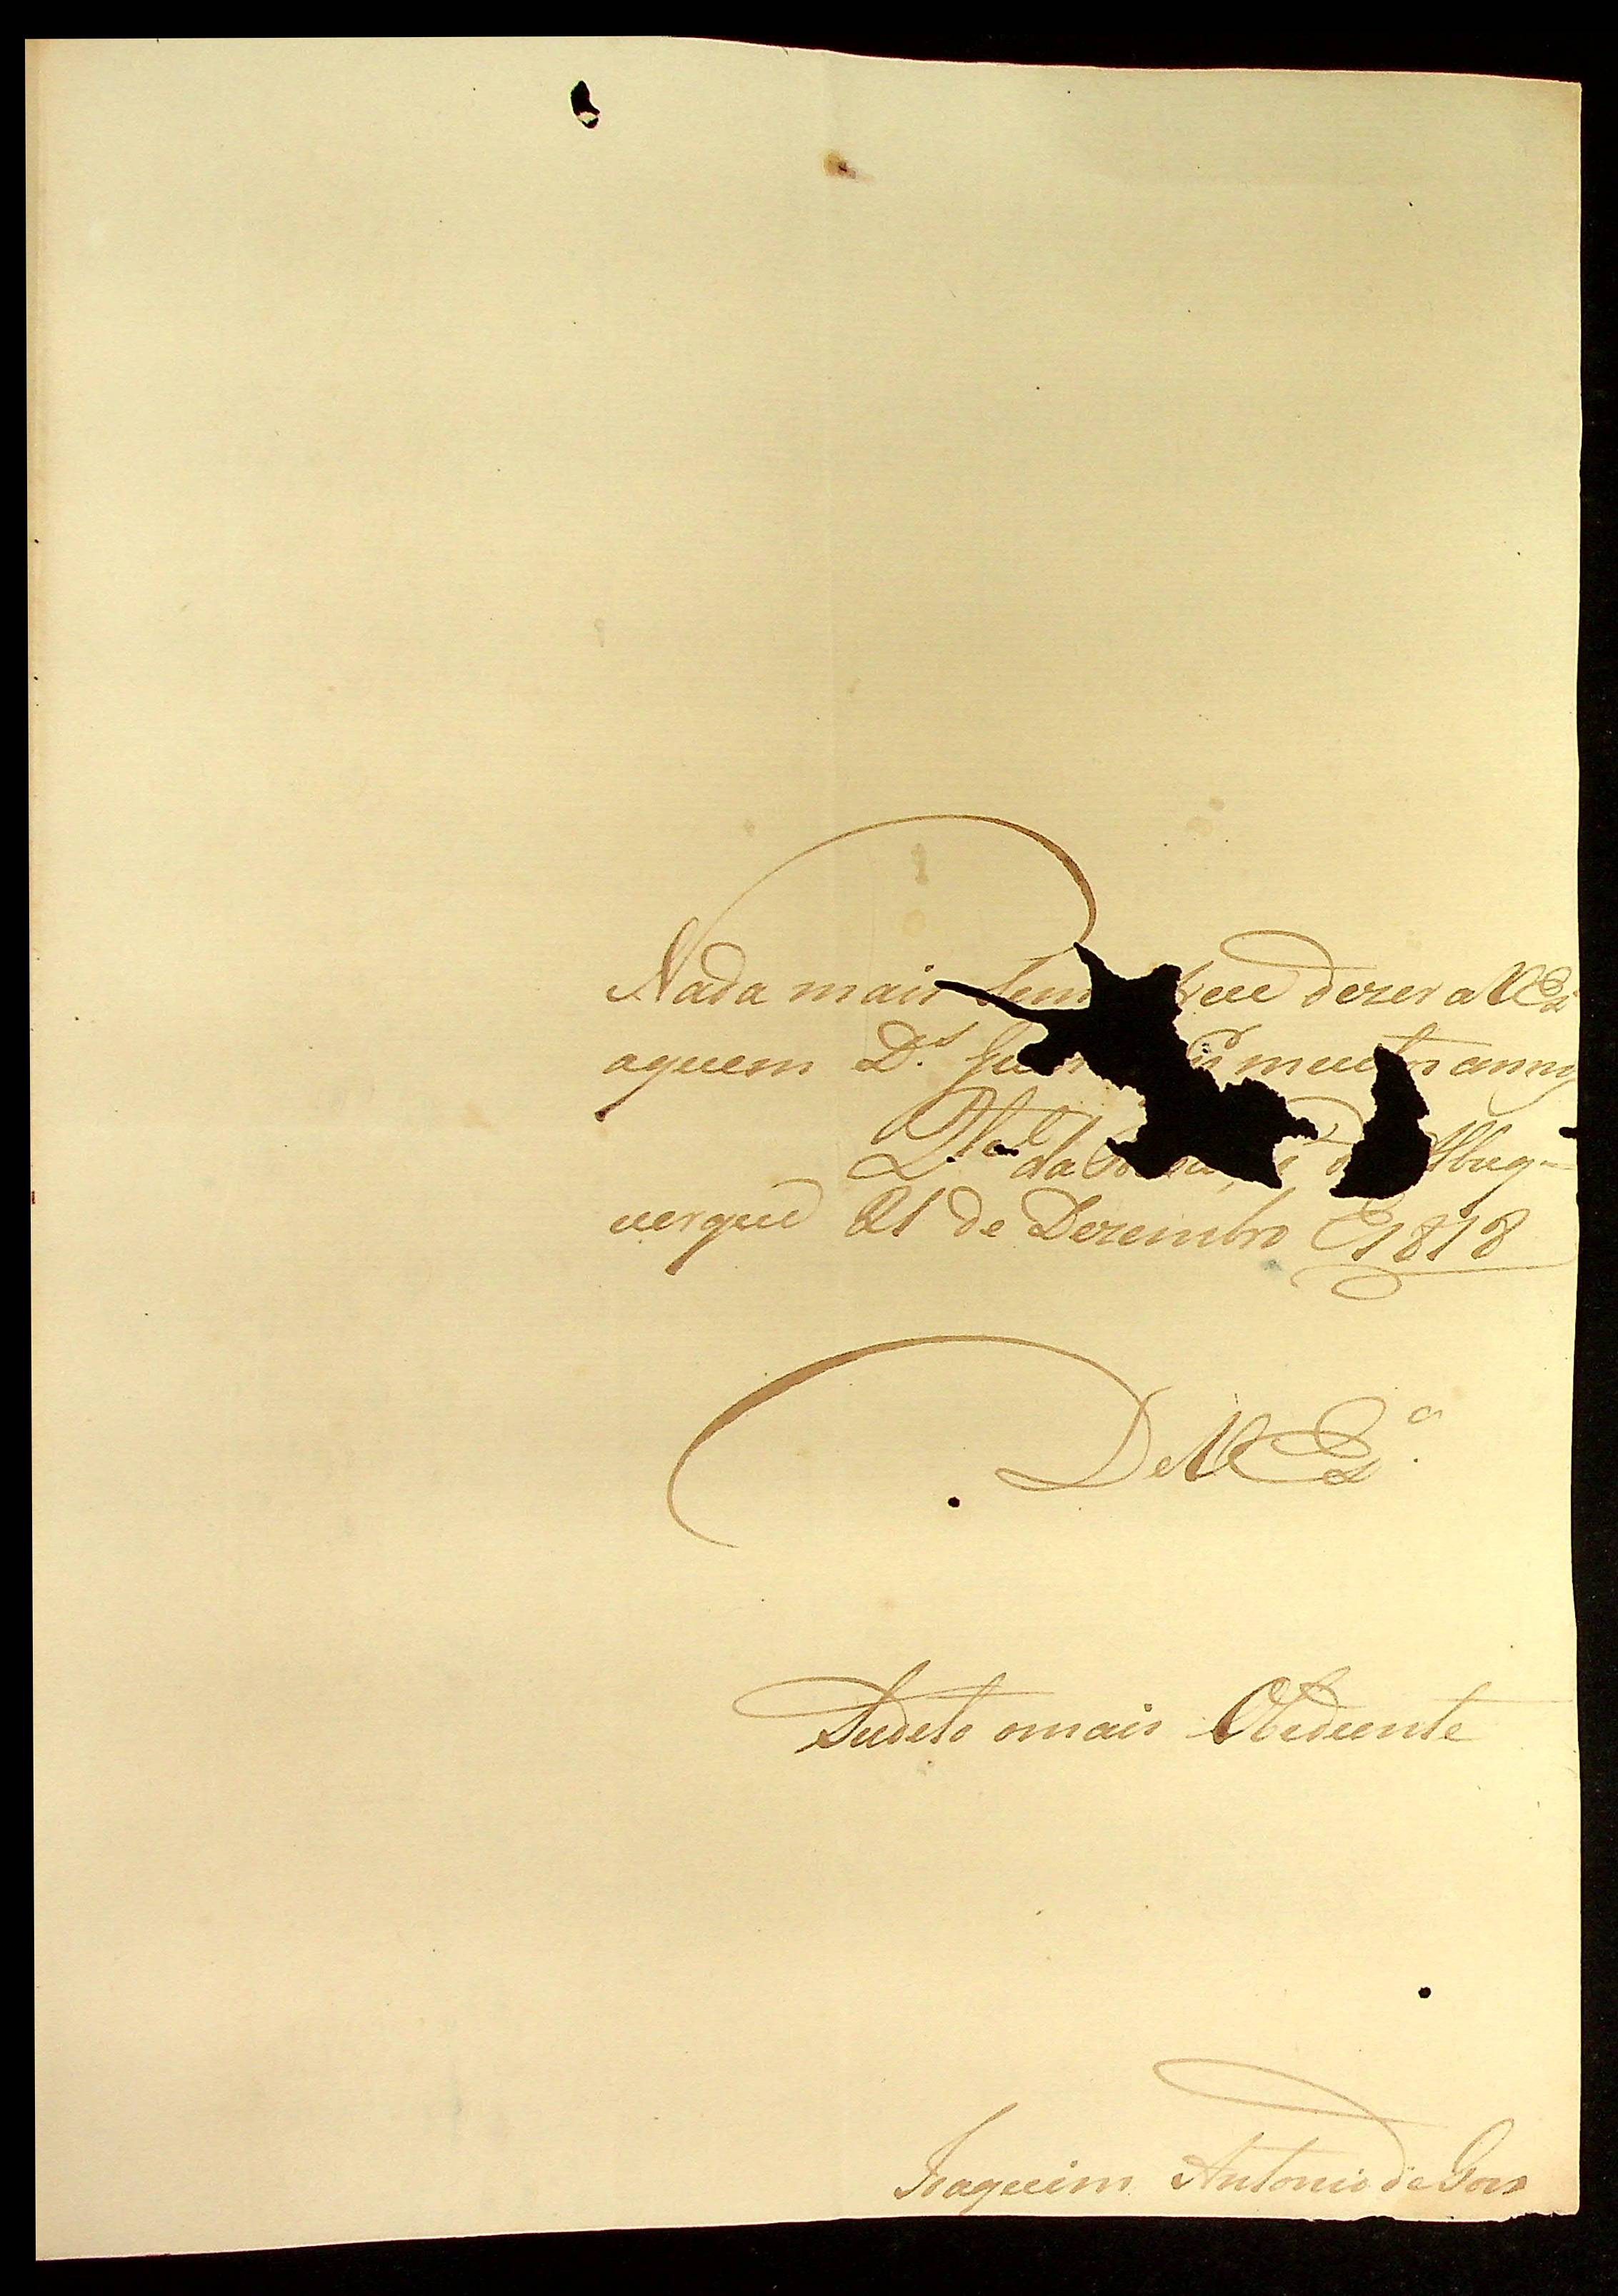 Nada mais dezer a V Ex
aquem D.s muitos annos
Q.tel da Albuq-
uerque 21 de Dezembro E 1818
De V Ex.a
Sudeto omais Obediente
Joaquim Antonio de Goes